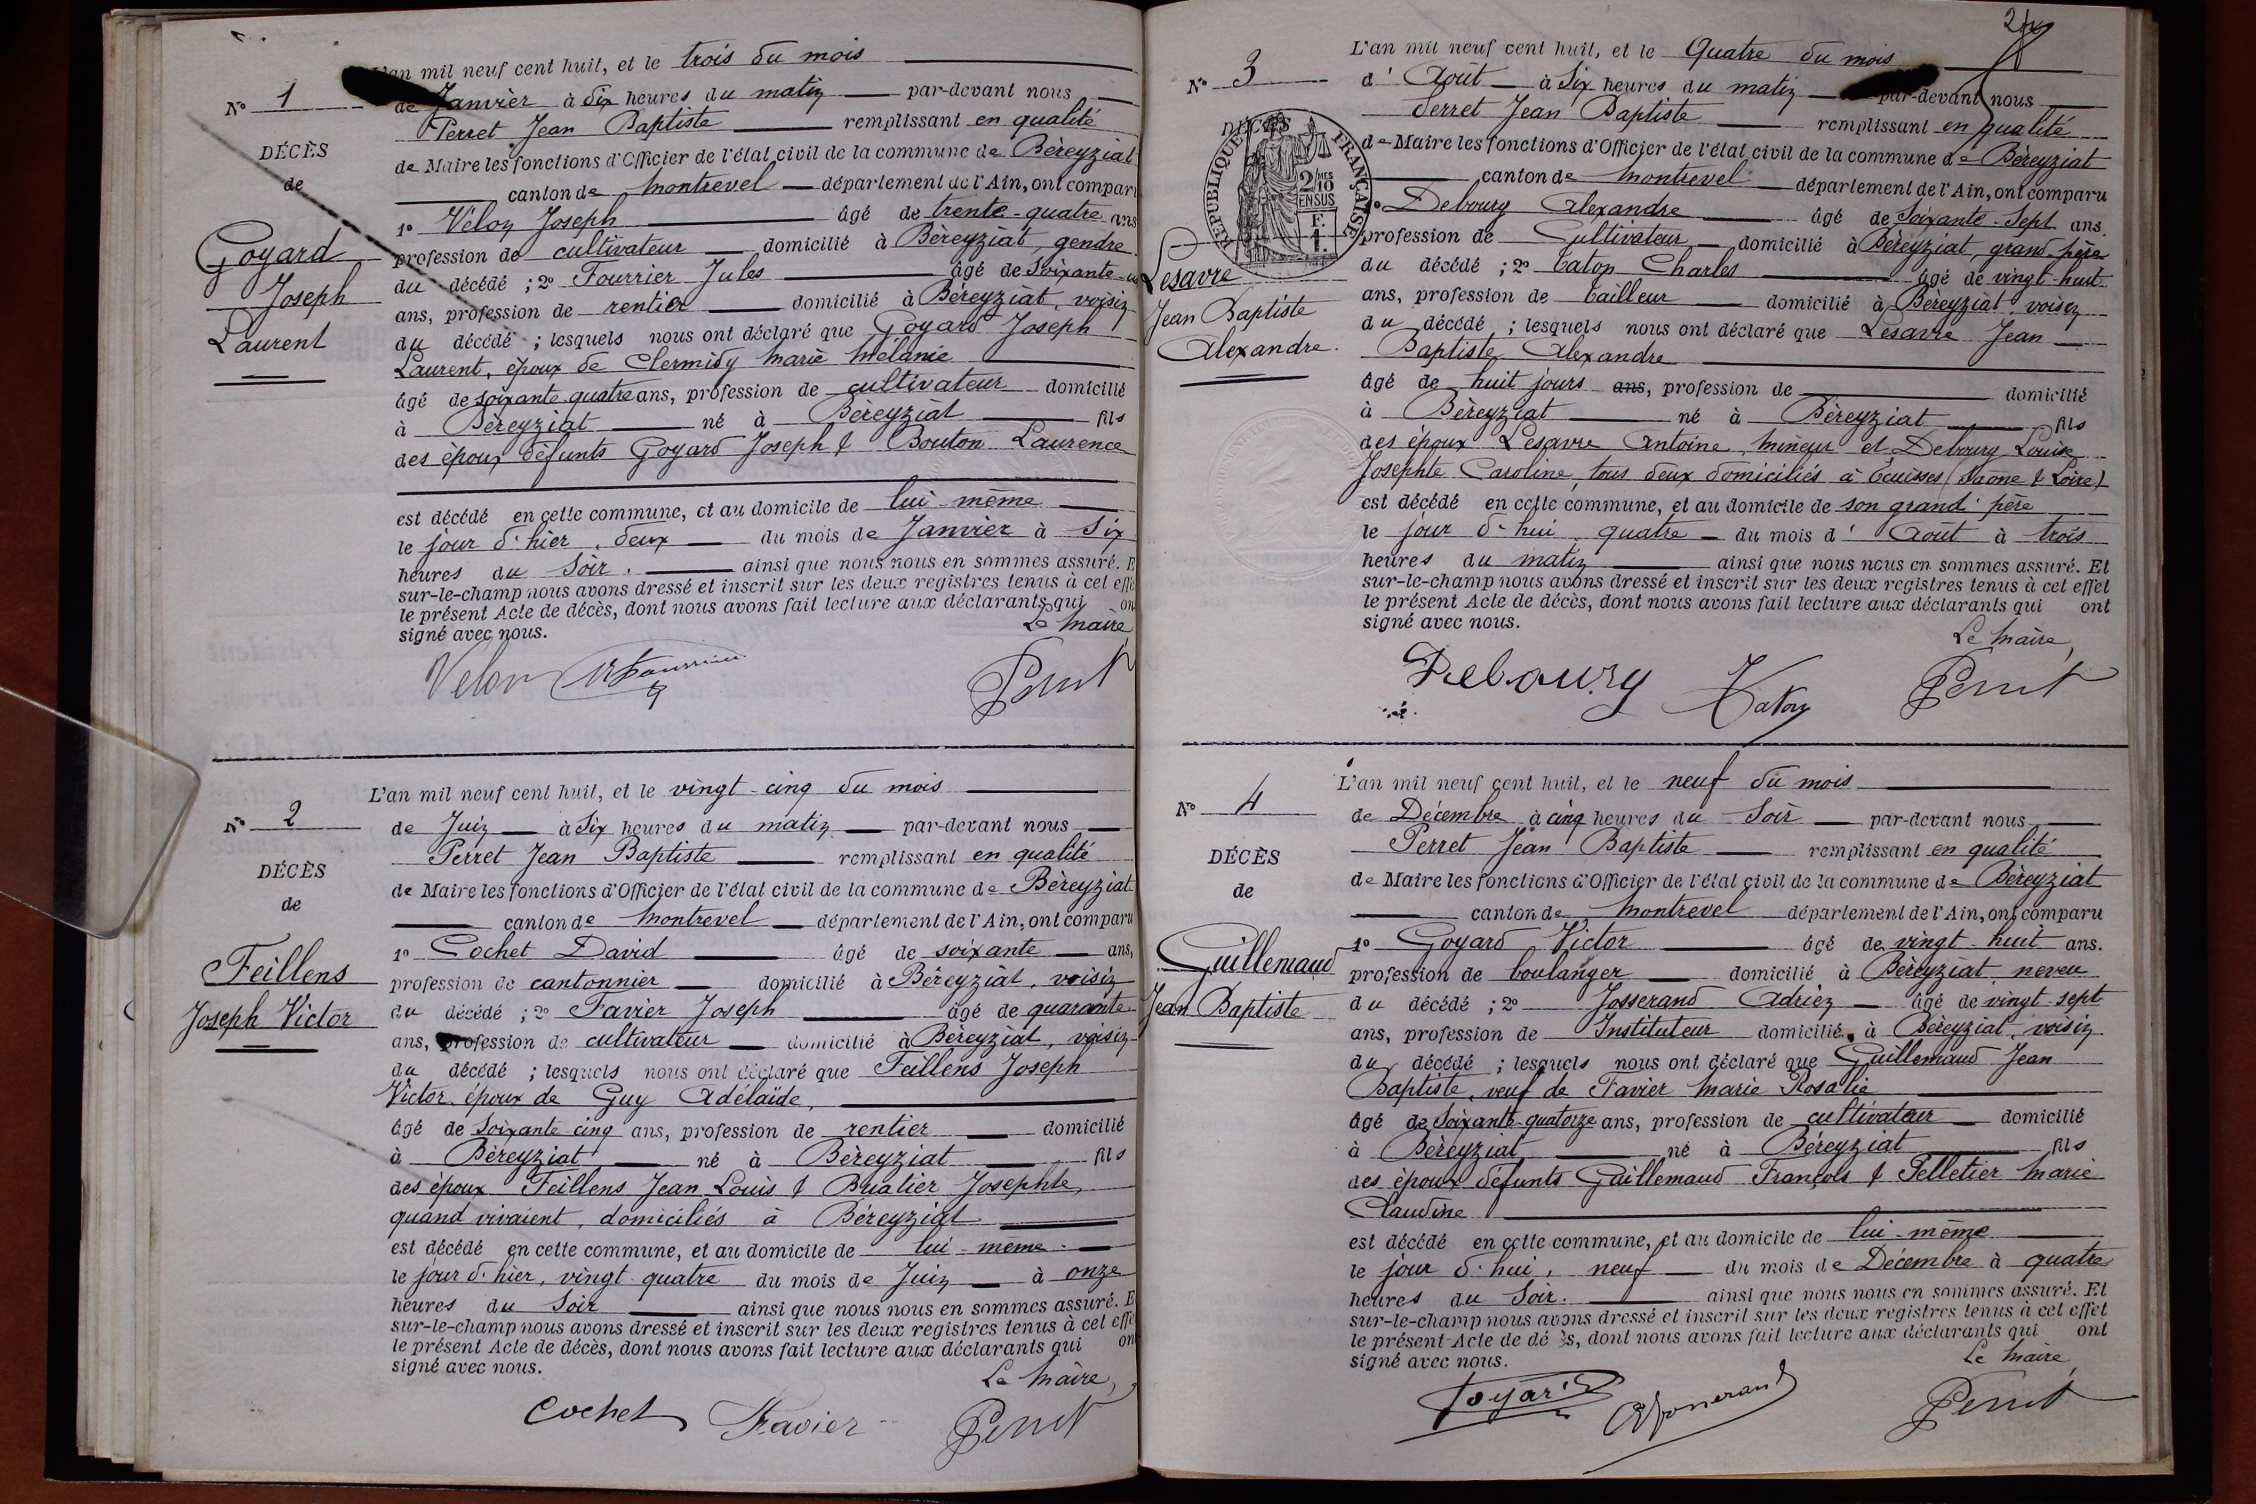 L'an mil neuf cent huit, et le trois du mois
N° 1
de Janvier à dix heures du matin par-devant nous
Perret Jean Baptiste remplissant en qualité
DÉCÈS
de Maire les fonctions d'Officier de l'état civil de la commune de Béreyziat
de
canton de Montrevel département de l'Ain, ont comparu
1° Vélon Joseph âgé de trente-quatre ans
Goyard
profession de cultivateur domicilié à Béreyziat, gendre
Joseph
du décédé ; 2° Fourrier Jules âgé de Soixante-un
ans, profession de rentier domicilié à Béreyziat, voisin
Laurent
du décédé ; lesquels nous ont déclaré que Goyard Joseph
Laurent, époux de Clermidy Marie Mélanie
âgé de soixante quatre ans, profession de cultivateur domicilié
à Béreyziat né à Béreyziat fils
des époux défunts Goyard Joseph & Bouton Laurence
est décédé en cette commune, et au domicile de lui-même
le jour d'hier, deux du mois de Janvier à six
heures du Soir. ainsi que nous nous en sommes assuré. E
sur-le-champ nous avons dressé et inscrit sur les deux registres tenus à cet effe
le présent Acte de décès, dont nous avons fait lecture aux déclarants qui on
signé avec nous. Le Maire,
Velon Perret
L'an mil neuf cent huit, et le vingt-cinq du mois
N° 2
de Juin à Six heures du matin par-devant nous
Perret Jean Baptiste remplissant en qualité
DÉCÈS
de Maire les fonctions d'Officier de l'état civil de la commune de Béreyziat
de
canton de Montrevel département de l'Ain, ont comparu
1° Cochet David âgé de soixante ans,
Feillens
profession de cantonnier domicilié à Béreyziat, voisin
Joseph Victor
du décédé ; 2° Favier Joseph âgé de quarante
ans, profession de cultivateur domicilié à Béreyziat, voisin
du décédé ; lesquels nous ont déclaré que Feillens Joseph
Victor époux de Guy Adélaïde,
âgé de Soixante cinq ans, profession de rentier domicilié
à Béreyziat né à Béreyziat fils
des époux Feillens Jean Louis & Bualier Josephte,
quand vivaient, domiciliés à Béreyziat
est décédé en cette commune, et au domicile de lui-même
le jour d'hier, vingt quatre du mois de Juin à onze
heures du Soir ainsi que nous nous en sommes assuré. E
sur-le-champ nous avons dressé et inscrit sur les deux registres tenus à cet effe
le présent Acte de décès, dont nous avons fait lecture aux déclarants qui on
signé avec nous. Le Maire,
Cochet Favier Perret
L'an mil neuf cent huit, et le Quatre du mois
N° 3
d' Août à Six heures du matin par-devant nous
Perret Jean Baptiste remplissant en qualité
DÉCÈS
RÉPUBLIQUE FRANÇAISE
2/10 MES
EN SUS
F.
1.
de Maire les fonctions d'Officier de l'état civil de la commune de Béreyziat
canton de Montrevel département de l'Ain, ont comparu
Debourg Alexandre âgé de Soixante-Sept ans.
profession de Cultivateur domicilié à Béreyziat, grand-père
Lesavre
du décédé ; 2° Caton Charles âgé de vingt-huit
Jean Baptiste
ans, profession de tailleur domicilié à Béreyziat, voisin
Alexandre.
du décédé ; lesquels nous ont déclaré que Lesavre Jean
Baptiste Alexandre
âgé de huit jours ans, profession de domicilié
à Béreyziat né à Béreyziat fils
des époux Lesavre Antoine, mineur et Debourg Louise
Josephte Caroline, tous deux domiciliés à Écuisses (Saône & Loire)
est décédé en cette commune, et au domicile de son grand'père
le jour d'hui quatre du mois d' Août à trois
heures du matin ainsi que nous nous en sommes assuré. Et
sur-le-champ nous avons dressé et inscrit sur les deux registres tenus à cet effet
le présent Acte de décès, dont nous avons fait lecture aux déclarants qui ont
signé avec nous. Le Maire,
Debourg Caton Perret
L'an mil neuf cent huit, et le neuf du mois
N° 4
de Décembre à cinq heures du Soir par-devant nous
Perret Jean Baptiste remplissant en qualité
DÉCÈS
de Maire les fonctions d'Officier de l'état civil de la commune de Béreyziat
de
canton de Montrevel département de l'Ain, ont comparu
1° Goyard Victor âgé de vingt-huit ans.
Guillemaud
profession de boulanger domicilié à Béreyziat, neveu
Jean Baptiste
du décédé ; 2° Josserand Adrien âgé de vingt-sept
ans, profession de Instituteur domicilié à Béreyziat, voisin
du décédé ; lesquels nous ont déclaré que Guillemaud Jean
Baptiste, veuf de Favier Marie Rosalie
âgé de Soixante-quatorze ans, profession de cultivateur domicilié
à Béreyziat né à Béreyziat fils
des époux défunts Guillemaud François & Pelletier Marie
Claudine
est décédé en cette commune, et au domicile de lui-même
le jour d'hui, neuf du mois de Décembre à quatre
heures du Soir. ainsi que nous nous en sommes assuré. Et
sur-le-champ nous avons dressé et inscrit sur les deux registres tenus à cet effet
le présent Acte de décès, dont nous avons fait lecture aux déclarants qui ont
signé avec nous. Le Maire,
Goyard Josserand Perret